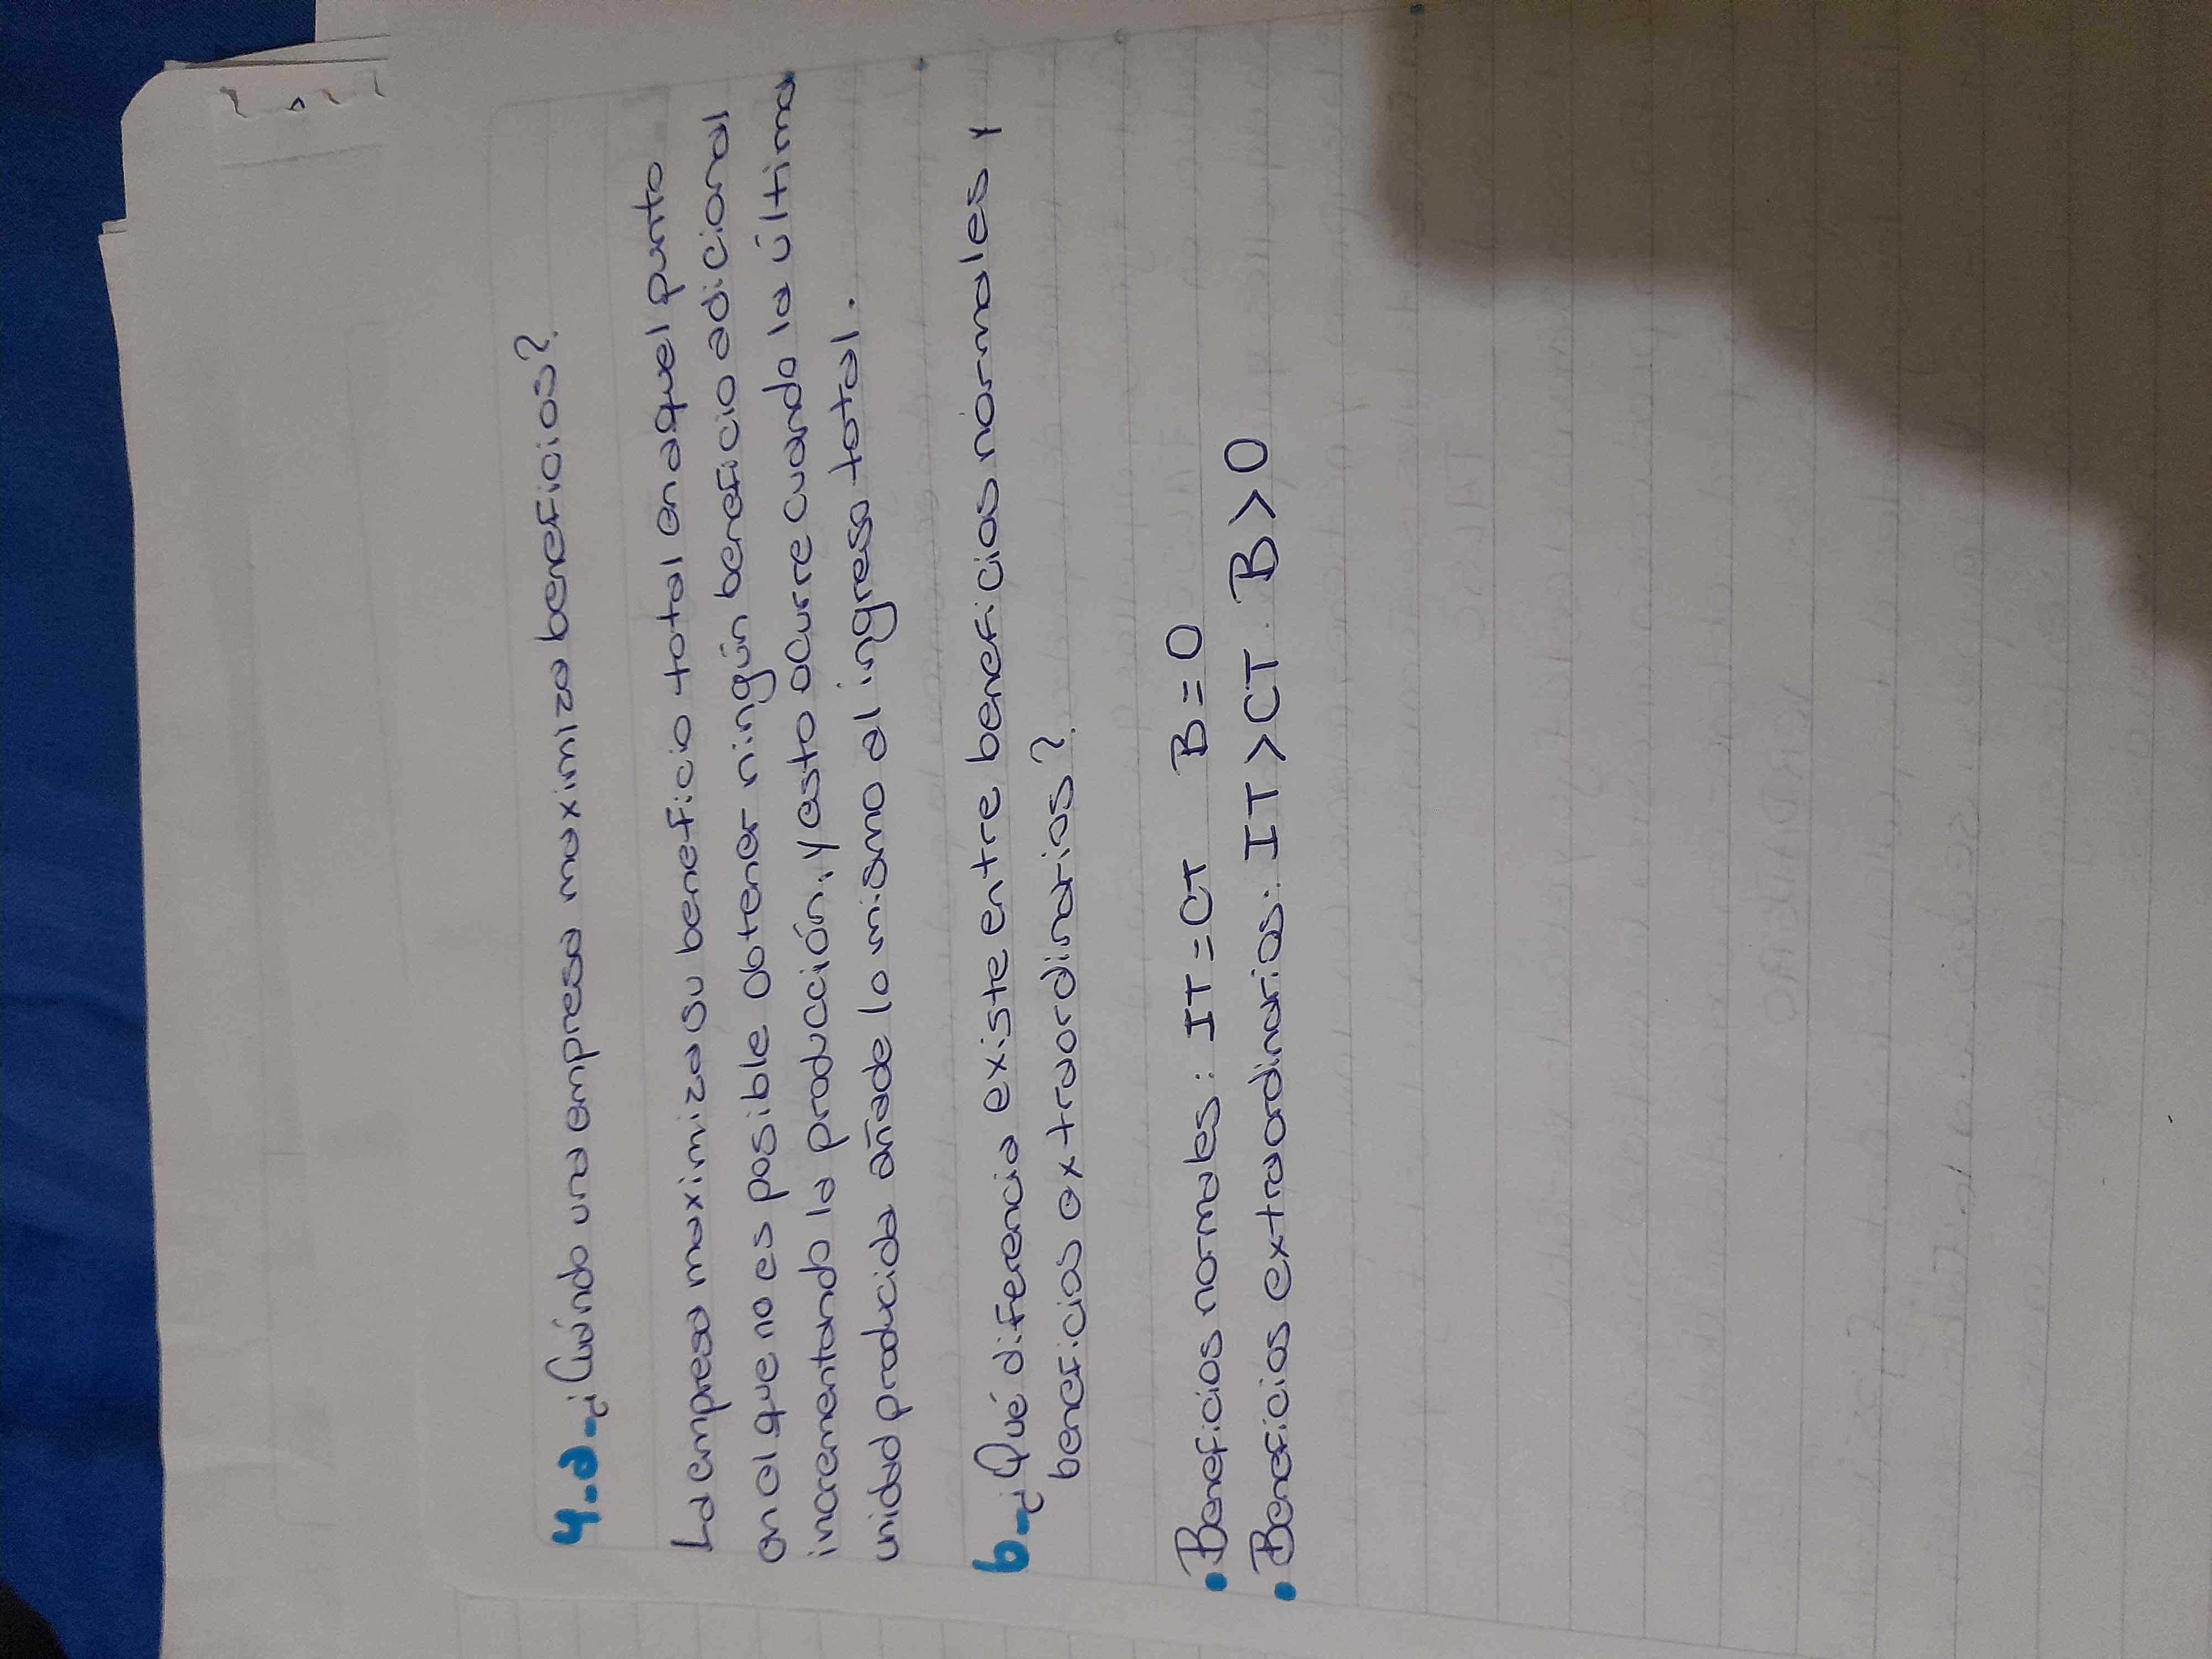 4.-a-¿Cuándo una empresa maximiza beneficios?
La empresa maximiza su beneficio total en aquel punto
en el que no es posible obtener ningún beneficio adicional
incrementando la producción, y esto ocurre cuando la última
unidad producida añade lo mismo al ingreso total.
b-¿Qué diferencia existe entre beneficios normales y
beneficios extraordinarios?
• Beneficios normales: IT=CT B=0
• Beneficios extraordinarios: IT>CT. B>0